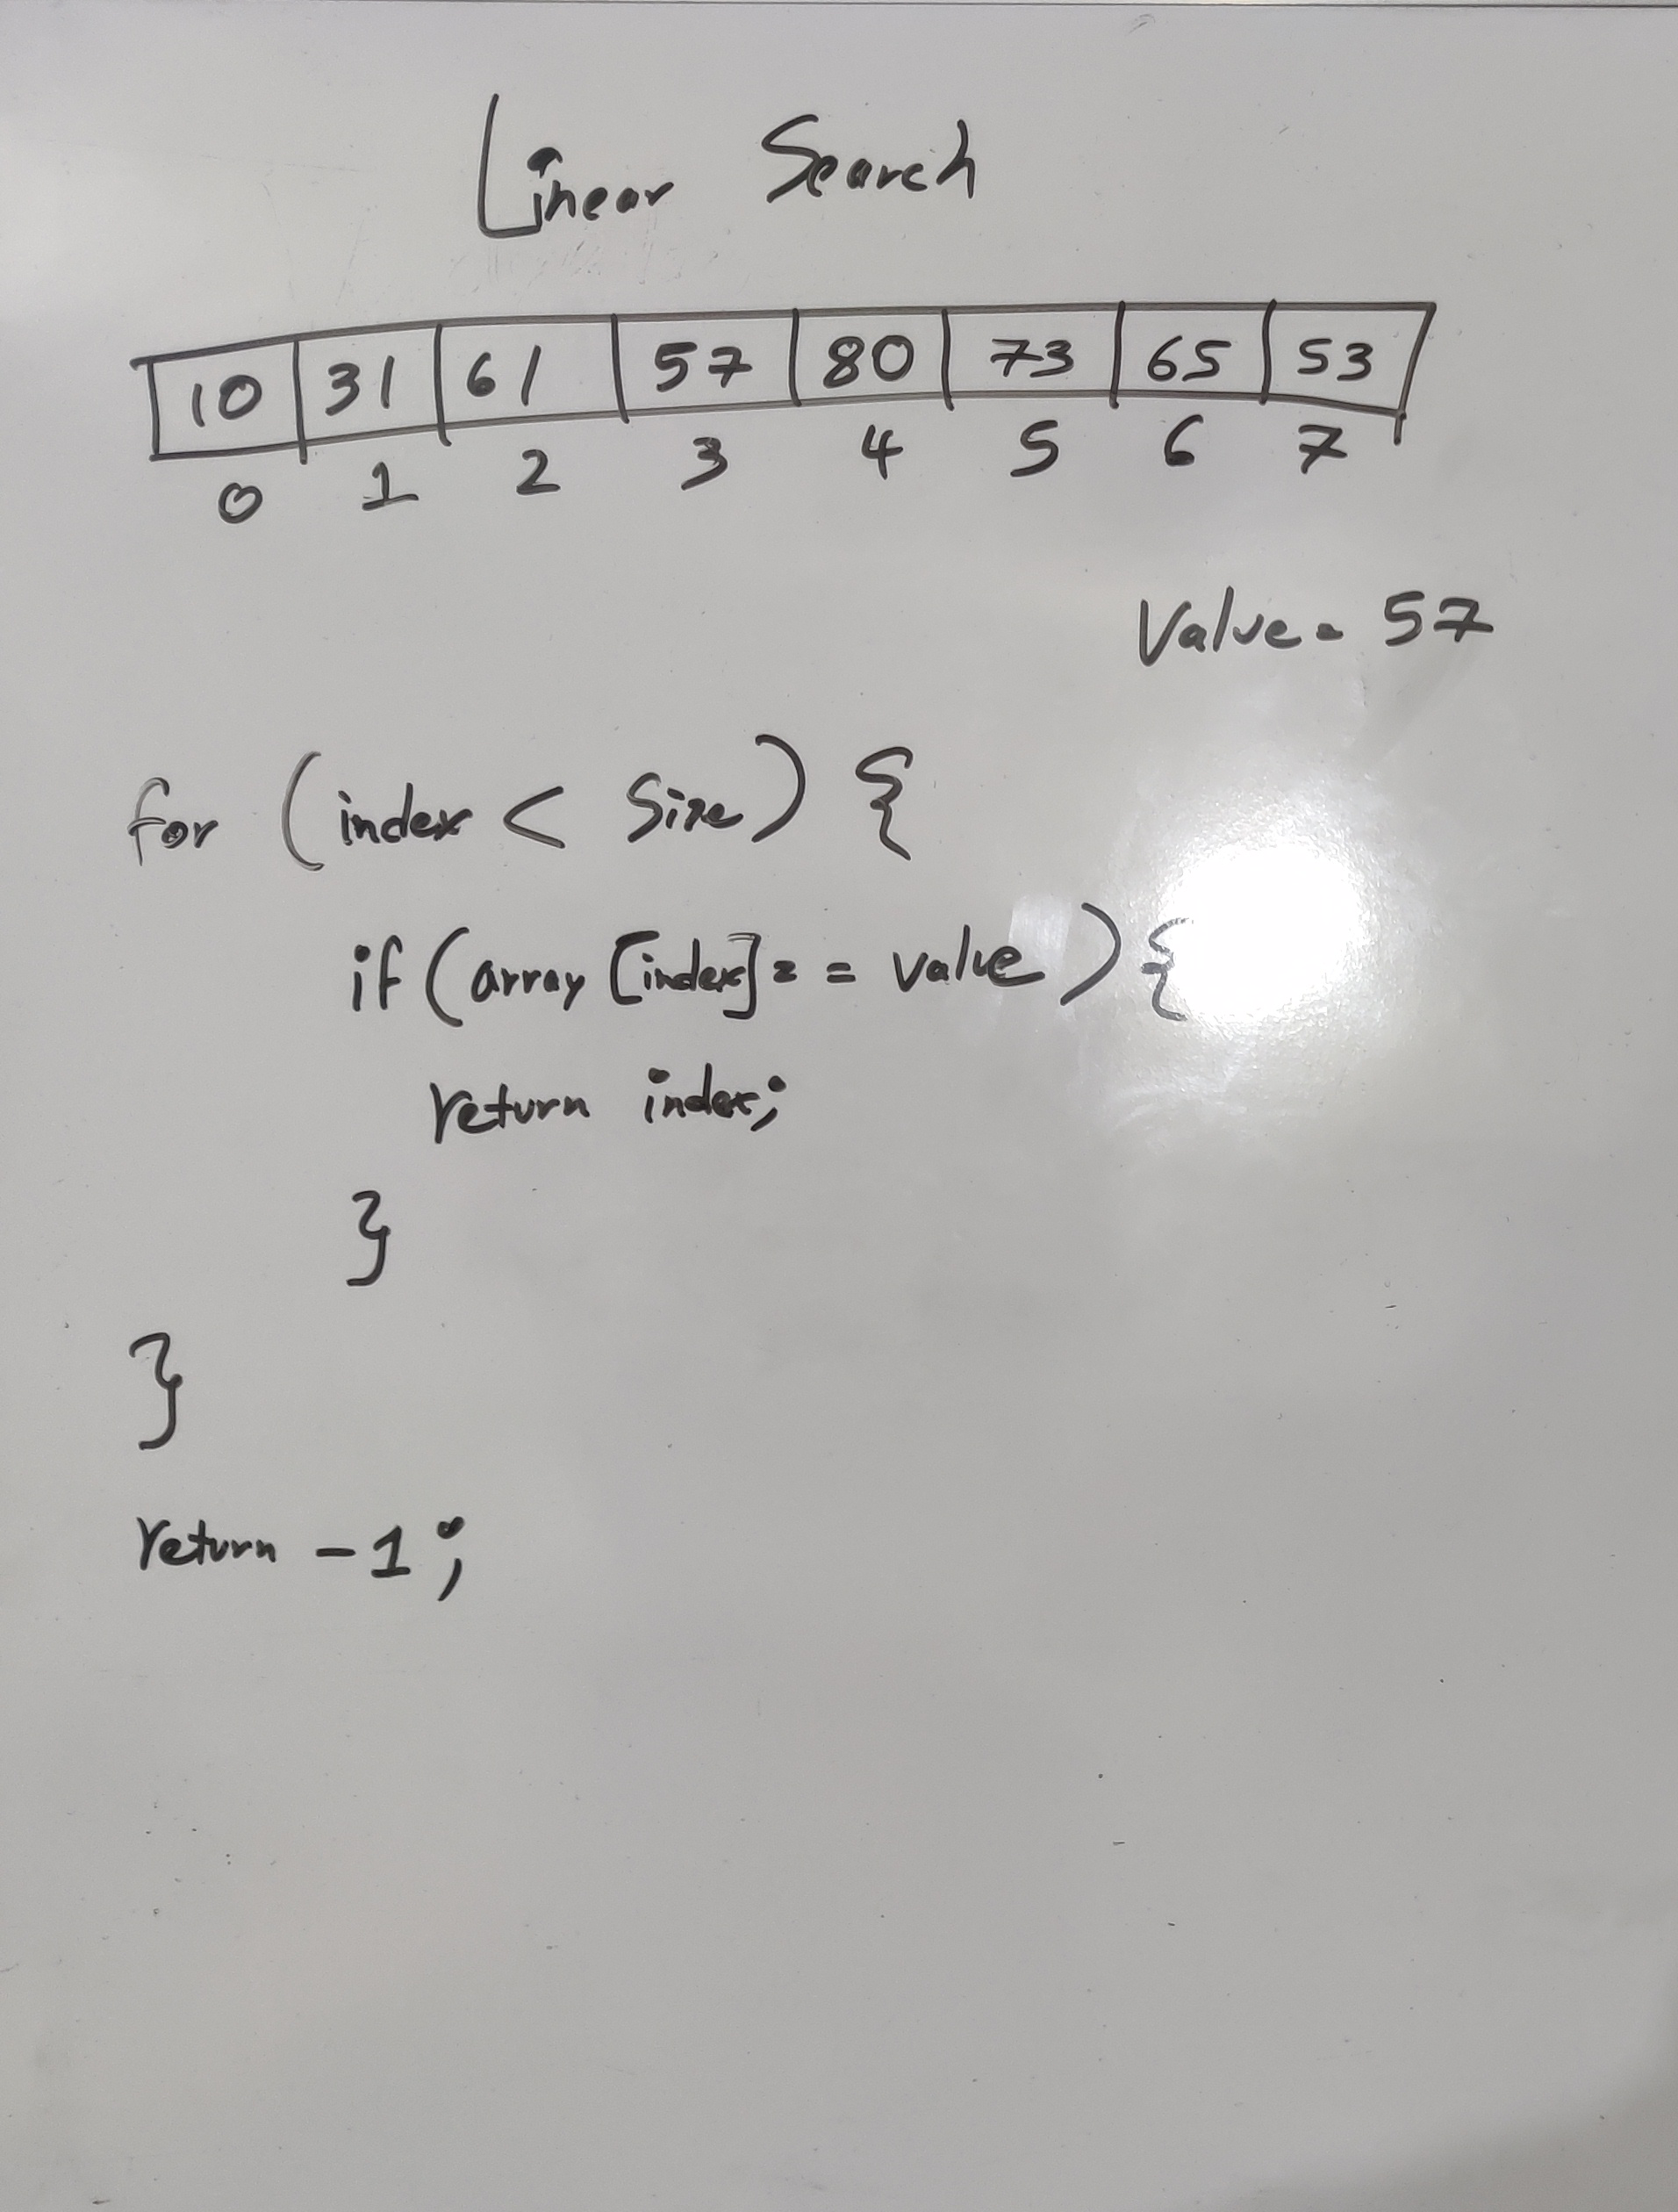 Linear Search
10 31 61 57 80 73 65 53
0 1 2 3 4 5 6 7
Value = 57
for (index < Size) {
if (array [index] == value) {
return index;
}
}
return -1;